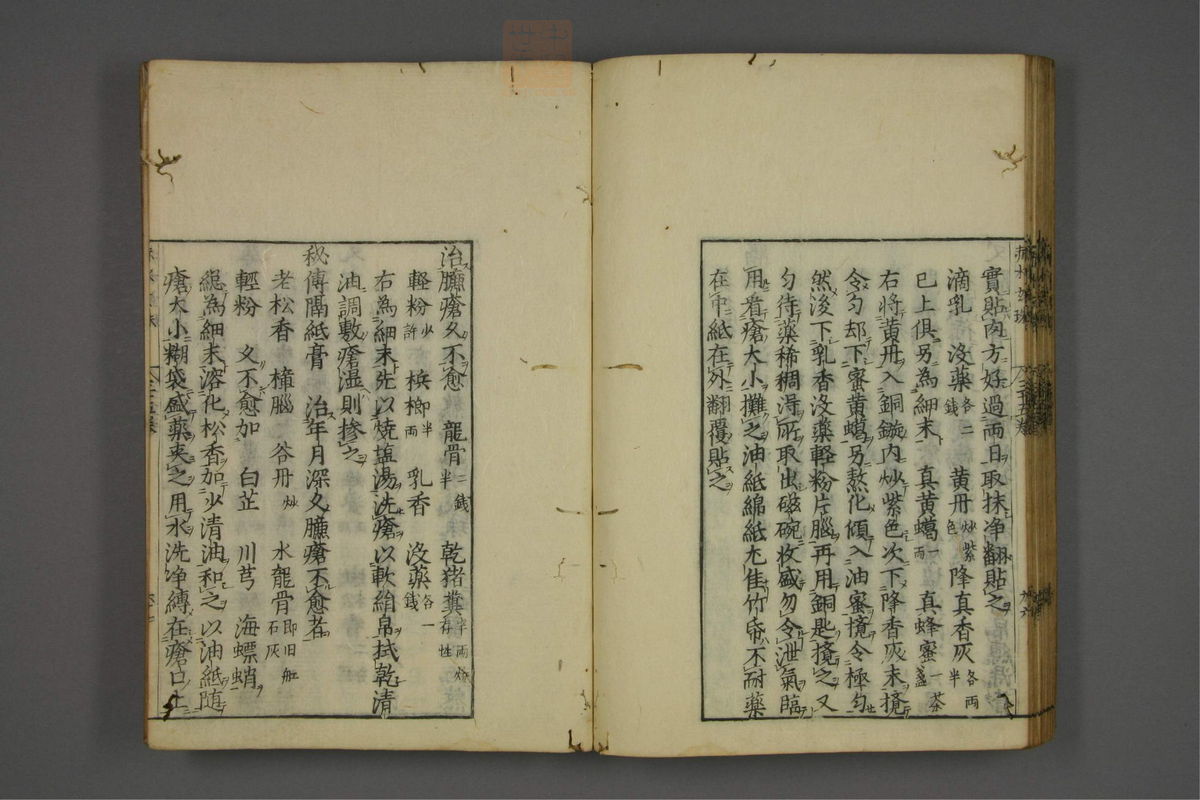 實貼肉方好過兩日取抹净翻貼之
滴乳 沒藥各二錢 黄丹炒紫色 降真香灰各兩半
已上俱另為細末 真黄蠟一兩 真蜂蜜一茶盞
右將黄丹入銅鏇内炒紫色次下降香灰末攪
令匀却下蜜黄蠟另熬化傾入油蜜攪令極匀
然後下乳香沒藥輕粉片腦再用銅匙攪之又
匀待藥稀稠得所取出磁碗收盛勿令泄氣臨
用看瘡大小攤之油紙綿紙尤佳竹帋不耐藥
在中紙在外翻覆貼之
治臁瘡久不愈 龍骨二錢半 乾猪糞半兩燒存性
輕粉少許 梹榔半兩 乳香 沒藥各一錢
右為細末先以燒塩湯洗瘡以軟絹帛拭乾清
油調敷瘡湿則摻之
秘傳隔紙膏 治年月深久臁瘡不愈者
老松香 樟腦 谷丹炒 水龍骨即旧舡石灰
輕粉 久不愈加 白芷 川芎 海螵蛸
緫為細末溶化松香加少清油和之以油紙随
瘡大小糊袋盛藥夾之用水洗净縛在瘡口上